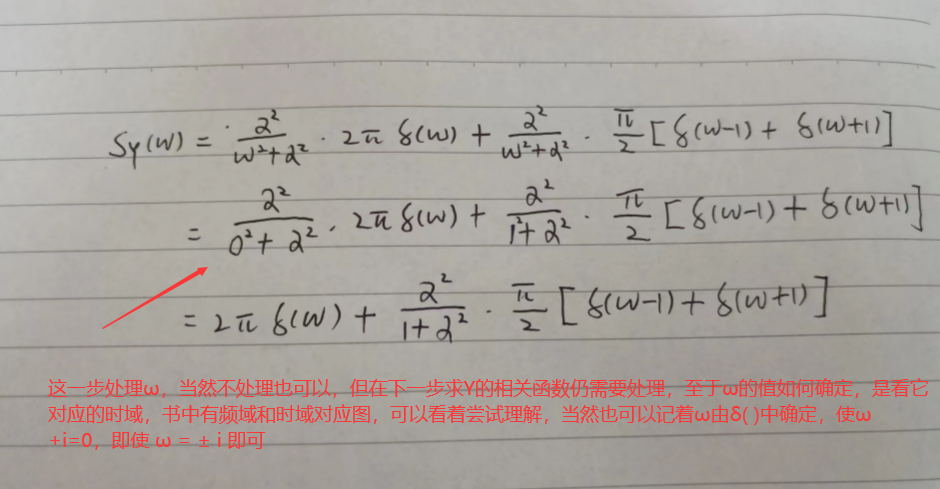 Sy(w) = α²/(w²+α²) · 2π δ(w) + α²/(w²+α²) · π/2 [δ(w-1) + δ(w+1)]
= α²/(0²+α²) · 2π δ(w) + α²/(1²+α²) · π/2 [δ(w-1) + δ(w+1)]
= 2π δ(w) + α²/(1+α²) · π/2 [δ(w-1) + δ(w+1)]
这一步处理ω，当然不处理也可以，但在下一步求Y的相关函数仍需要处理，至于ω的值如何确定，是看它
对应的时域，书中有频域和时域对应图，可以看着尝试理解，当然也可以记着ω由δ( )中确定，使ω
+i=0，即使 ω = ± i 即可